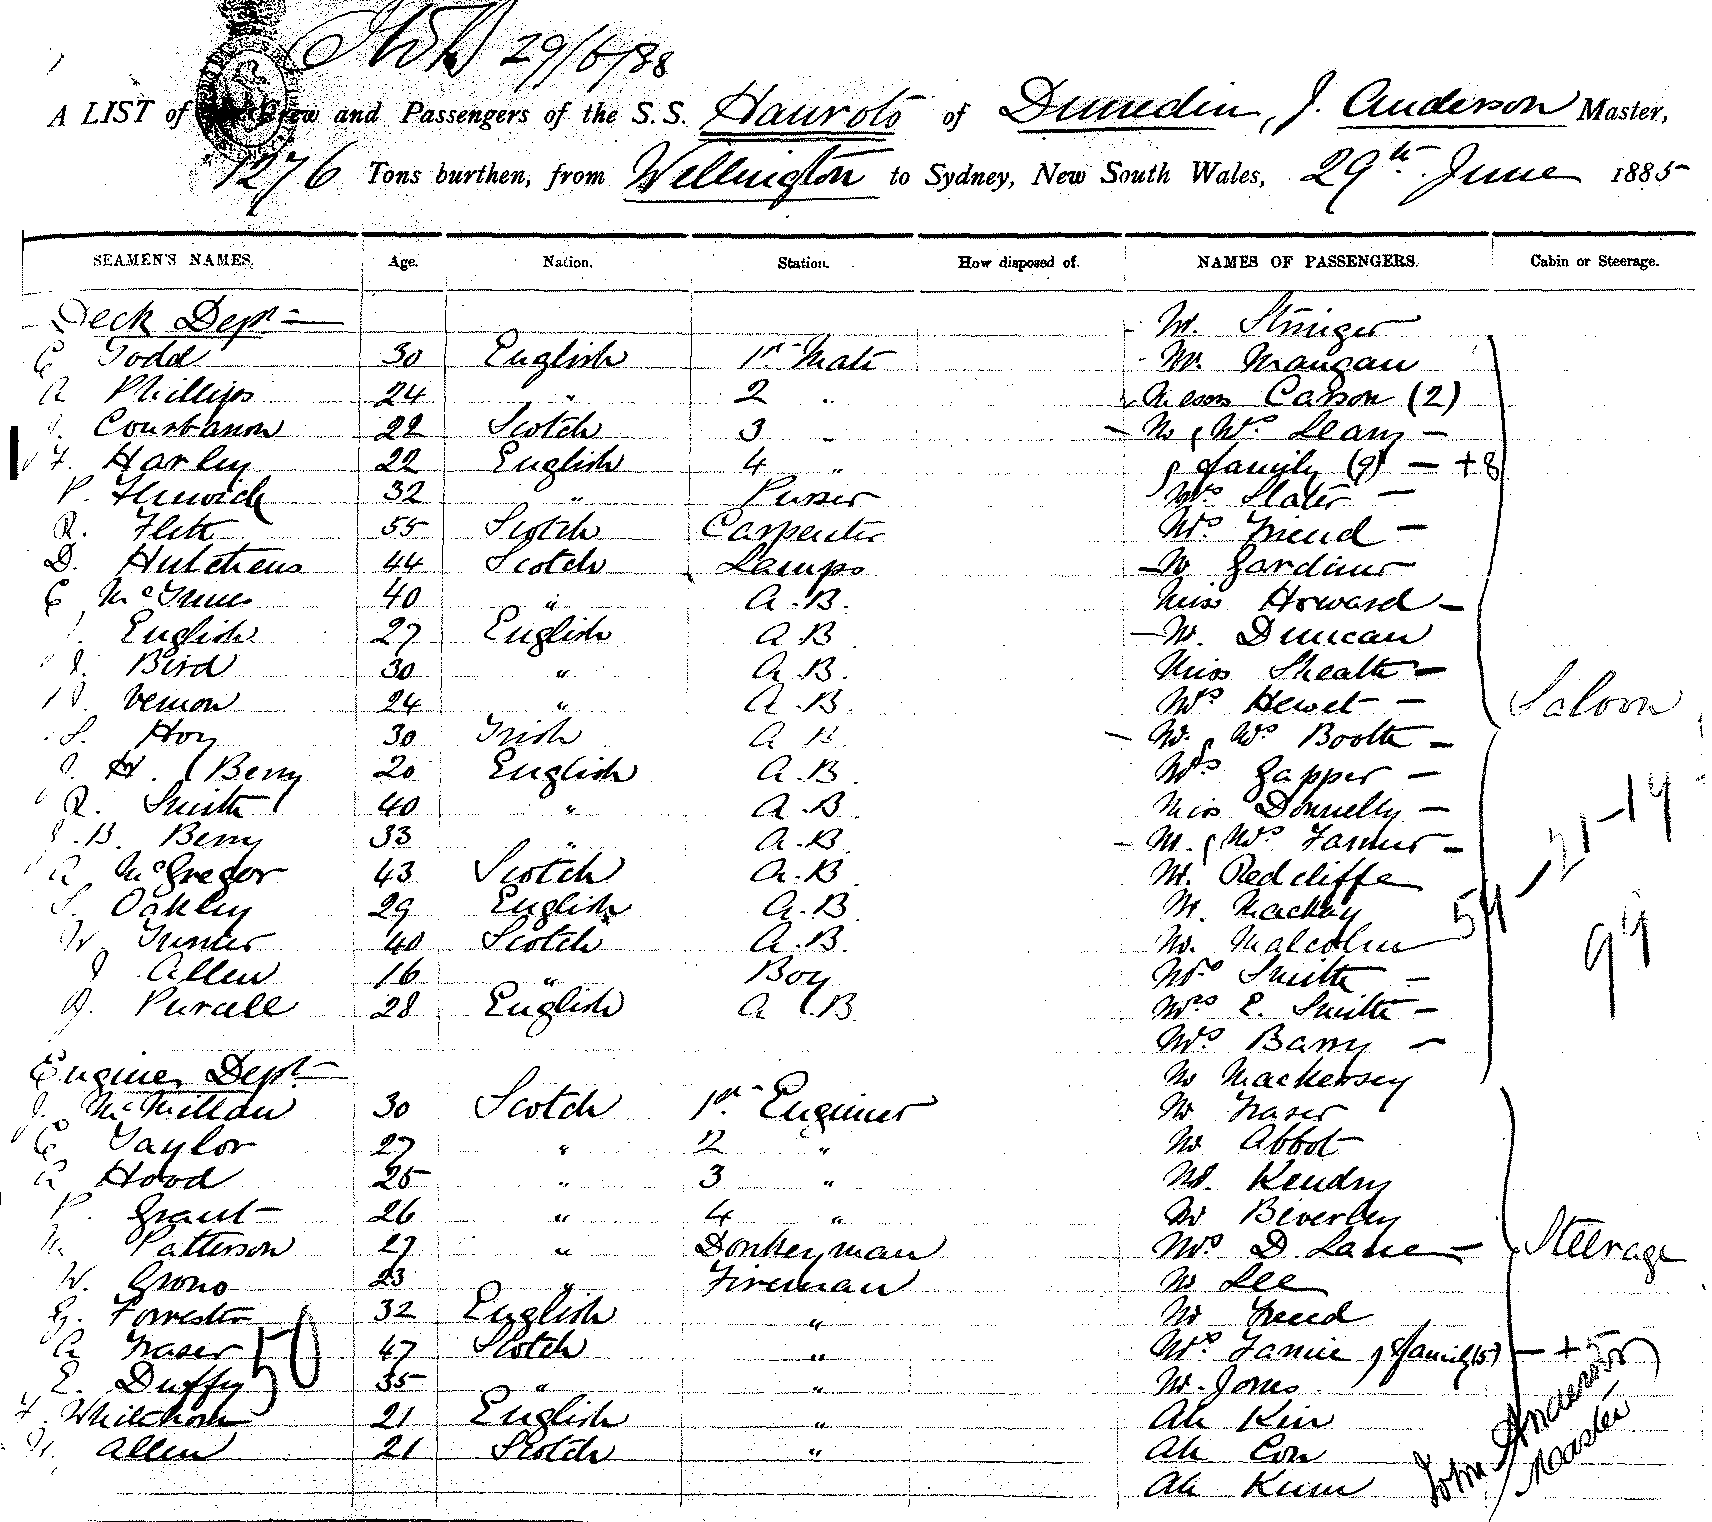 29/6/88
A LIST of Crew and Passengers of the S.S. Hauroto of Dunedin, J. Anderson Master,
1276 Tons burthen, from Wellington to Sydney, New South Wales, 29th June 1885
SEAMEN'S NAMES. Age. Nation. Station. How disposed of. NAMES OF PASSENGERS. Cabin or Steerage.
Deck Dept Mr. Stringer
C Todd 30 English 1st Mate Mr. Mangan
A Phillips 24 " 2 " Messrs Carson (2)
Courtanon 22 Scotch 3 " Mr & Mrs Leary -
F. Harley 22 English 4 " & family (9) - +8
P. Fenwick 32 " Purser Mrs Slater -
R. Flett 55 Scotch Carpenter Mrs Friend -
D. Hutchens 44 Scotch Lamps Mr Gardiner
C McInnes 40 " A.B. Miss Howard -
English 27 English A.B Mr. Duncan
J. Bird 30 " A.B. Miss Sheath -
Vernon 24 " A.B. Mrs Hewet - Saloon
S. Hoy 30 Irish A B Mr. & Mrs Booth -
J. H. Berry 20 English A.B. Mrs Gapper -
R. Smith 40 " A.B Miss Donnelly -
J. B. Berry 33 " A.B. Mr. & Mrs Farmer -
A McGregor 43 Scotch A.B. Mr. Redcliffe
S. Oakley 29 English A.B Mr. Mackay
W. Gunter 40 Scotch A.B. Mr. Malcolm
J Allen 16 " Boy Mrs Smith -
J. Purcell 28 English A B Mrs E. Smith -
Mrs Barry -
Engineer Dept Mr Mackersey
J. McMillan 30 Scotch 1st Engineer Mr Fraser
C Taylor 27 " 2 " Mr Abbot
A Hood 25 " 3 " Mr. Kendry
P. Grant 26 " 4 " Mr Beverley
M. Patterson 27 " Donkeyman Mrs D Lane - Steerage
W. Grono 23 " Fireman Mr Lee
G. Forrester 32 English " Mr Freed
A Fraser 47 Scotch " Mrs Jamie & family (5) - +5
E. Duffy 35 " " Mr. Jones
50
F. Whitehorn 21 English " Ah Kin
W. Allen 21 Scotch " Ah Con
Ah Kum
John Anderson
Master